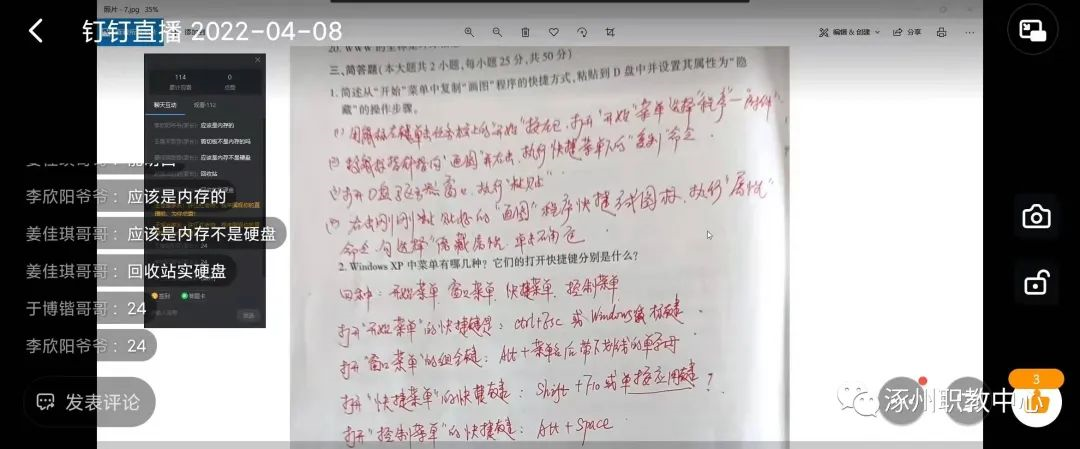 照片 - 7.jpg 35%
钉钉直播 2022-04-08
编辑 & 创建
分享
114
0
累计观看
点赞
聊天互动
观看·112
应该是内存的
剪切板不是内存的吗
应该是内存不是硬盘
回收站
李欣阳爷爷：应该是内存的
姜佳琪哥哥：应该是内存不是硬盘
姜佳琪哥哥：回收站实硬盘
于博锴哥哥：24
李欣阳爷爷：24
24
签到
答题卡
发送
发表评论
三、简答题(本大题共2小题,每小题25分,共50分)
1. 简述从“开始”菜单中复制“画图”程序的快捷方式,粘贴到D盘中并设置其属性为“隐
藏”的操作步骤。
打开“开始”菜单选择“程序”—“附件”
“画图”并右击,执行快捷菜单下的“复制”命令.
打开D盘 窗口,执行“粘贴”.
右击刚刚粘贴好的“画图”程序快捷方式图标,执行“属性”
命令,勾选择“隐藏属性,单击确定
2. Windows XP 中菜单有哪几种？它们的打开快捷键分别是什么？
四种：开始菜单 窗口菜单 快捷菜单 控制菜单
打开“开始菜单”的快捷键是：ctrl+Esc 或Windows徽标键.
打开“窗口菜单”的组合键：Alt+菜单名后带下划线的单字母
打开“快捷菜单”的快捷键：Shift+F10或单按应用键？
打开“控制菜单”的快捷键：Alt+Space
涿州职教中心
3